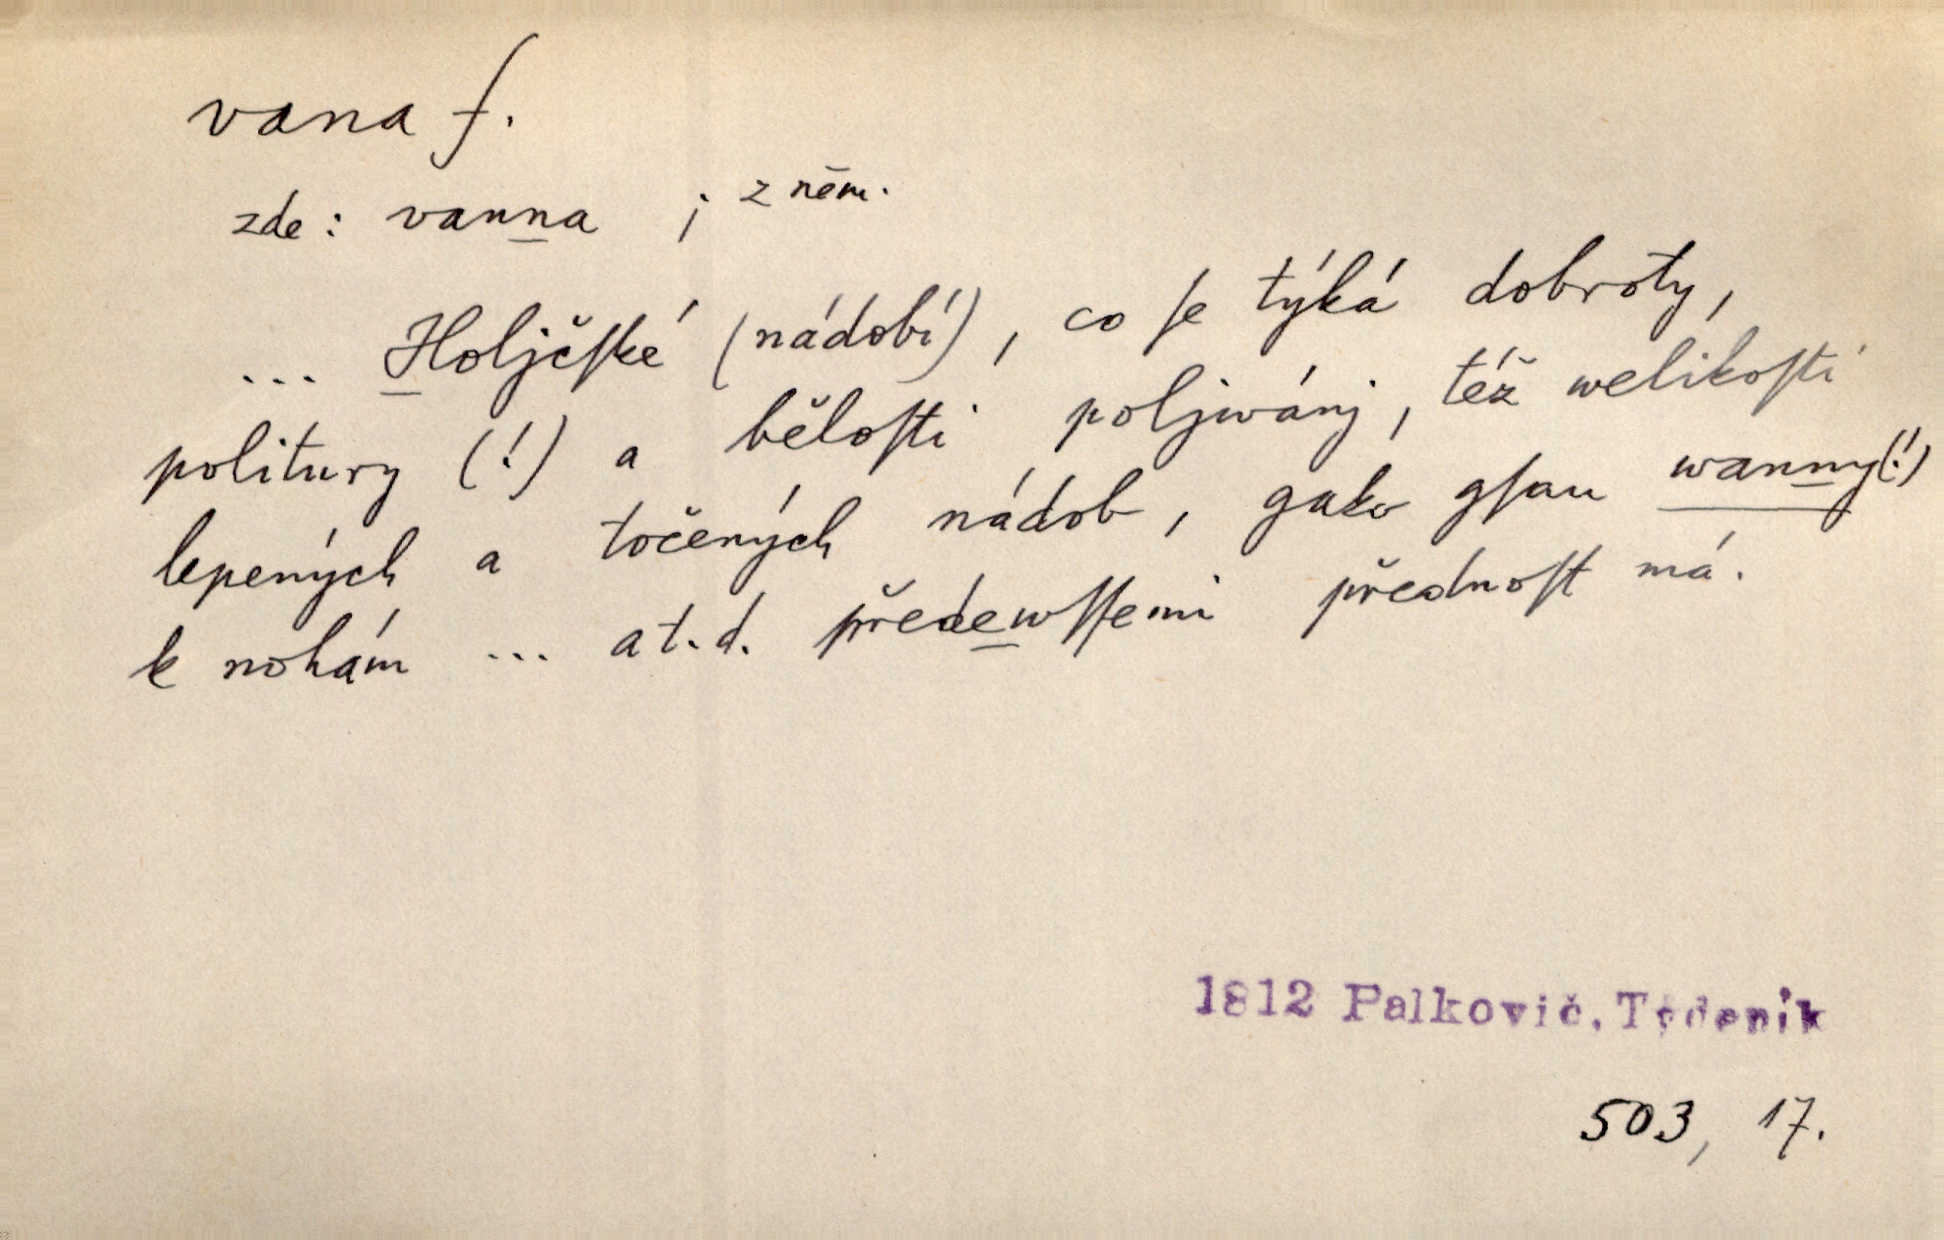 vana f.
zde: vanna ; z něm.
... Holjčſké (nádobí), co ſe týká dobroty,
politury (!) a běloſti poljwánj, též welikoſti
lepených a točených nádob, gako gſau wanny(!)
k nohám ... a t. d. předewſſemi přednoſt má.
1812 Palkovič, Týdeník
503, 17.